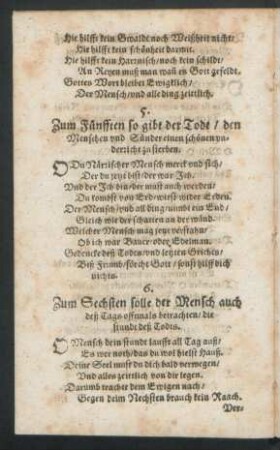 Hie hilfft kein Gewaldt noch Weißheit nicht/
Hie hilfft kein schönheit darmit.
Hie hilfft kein Harnisch/noch kein schildt/
An Reyen muß man waß en Gott gefeldt.
Gottes Wort bleibet Ewigklich/
Der Mensch/vnd alle ding zeitlich.
5.
Zum Fünfften so gibt der Todt / den
Menschen vnd Sünder einen schönen vn-
derricht zu sterben.
O Du Närrischer Mensch merck vnd sich/
Der du jetzt bist/ der war Ich.
Vnd der Ich bin/ der must auch werden/
Du kombst von Erd/wirst wider Erden.
Der Mensch/vnd all ding/nimbt ein End/
Gleich wie der schatten an der wänd.
Welcher Mensch mag jetzt verstahn/
Ob ich war Bauer/oder Edelman.
Gedencke deß Todes/vnd letzten Grichts/
Biß Fromb/förcht Gott / sonst hilff dich
nichts.
6.
Zum Sechsten solle der Mensch auch
deß Tags offtmals betrachten/ die
stundt deß Todts.
O Mensch dein stundt laufft all Tag auß/
Es wer noth/das du wol hielst Hauß.
Deine Seel must du dich bald verwegen/
Vnd alles zeitlich von dir legen.
Darumb trachte dem Ewigen nach/
Gegen deim Nechsten brauch kein Raach.
Ver-